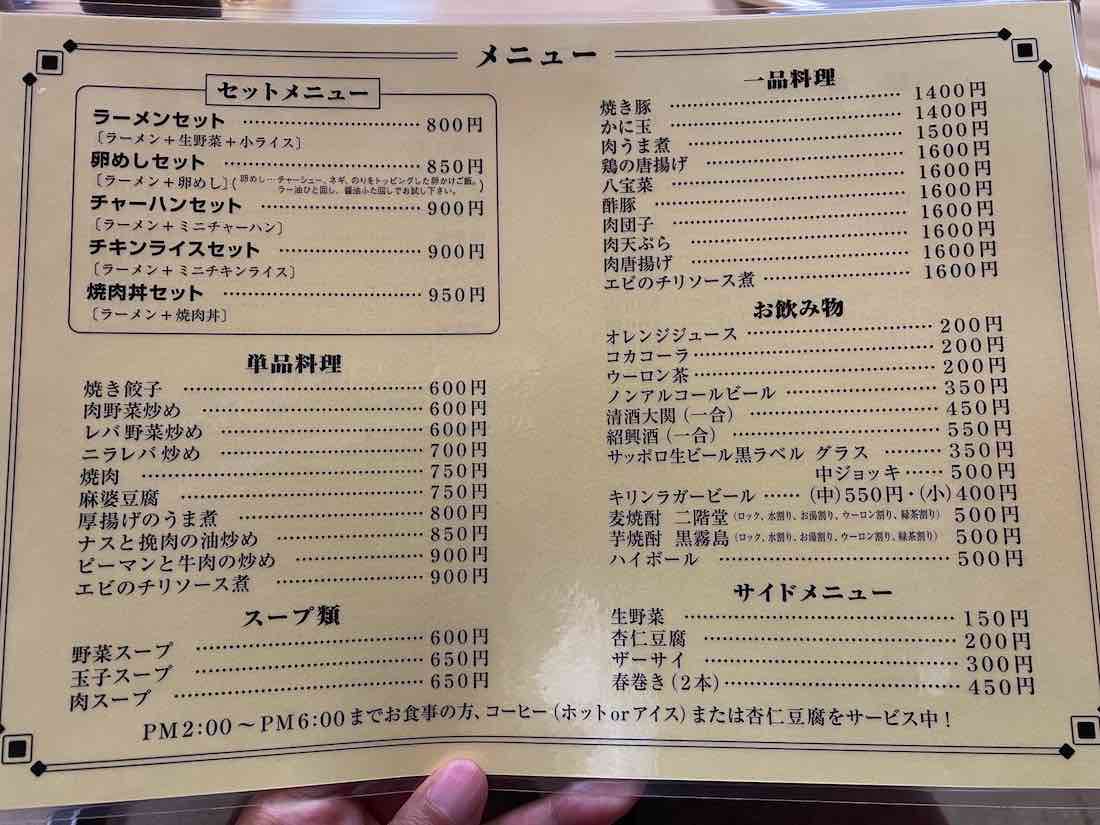 メニュー
セットメニュー
ラーメンセット ……… 800円
〔ラーメン＋生野菜＋小ライス〕
卵めしセット ……… 850円
〔ラーメン＋卵めし〕(卵めし…チャーシュー、ネギ、のりをトッピングした卵かけご飯。
ラー油ひと回し、醤油ふた回しでお試し下さい。)
チャーハンセット ……… 900円
〔ラーメン＋ミニチャーハン〕
チキンライスセット ……… 900円
〔ラーメン＋ミニチキンライス〕
焼肉丼セット ……… 950円
〔ラーメン＋焼肉丼〕
単品料理
焼き餃子 ……… 600円
肉野菜炒め ……… 600円
レバ野菜炒め ……… 600円
ニラレバ炒め ……… 700円
焼肉 ……… 750円
麻婆豆腐 ……… 750円
厚揚げのうま煮 ……… 800円
ナスと挽肉の油炒め ……… 850円
ピーマンと牛肉の炒め ……… 900円
エビのチリソース煮 ……… 900円
スープ類
野菜スープ ……… 600円
玉子スープ ……… 650円
肉スープ ……… 650円
一品料理
焼き豚 ……… 1400円
かに玉 ……… 1400円
肉うま煮 ……… 1500円
鶏の唐揚げ ……… 1600円
八宝菜 ……… 1600円
酢豚 ……… 1600円
肉団子 ……… 1600円
肉天ぷら ……… 1600円
肉唐揚げ ……… 1600円
エビのチリソース煮 ……… 1600円
お飲み物
オレンジジュース ……… 200円
コカコーラ ……… 200円
ウーロン茶 ……… 200円
ノンアルコールビール ……… 350円
清酒大関（一合） ……… 450円
紹興酒（一合） ……… 550円
サッポロ生ビール黒ラベル グラス ……… 350円
中ジョッキ …… 500円
キリンラガービール …… (中)550円・(小)400円
麦焼酎 二階堂（ロック、水割り、お湯割り、ウーロン割り、緑茶割り） 500円
芋焼酎 黒霧島（ロック、水割り、お湯割り、ウーロン割り、緑茶割り） 500円
ハイボール ……… 500円
サイドメニュー
生野菜 ……… 150円
杏仁豆腐 ……… 200円
ザーサイ ……… 300円
春巻き（2本） ……… 450円
PM2:00～PM6:00までお食事の方、コーヒー（ホットorアイス）または杏仁豆腐をサービス中！